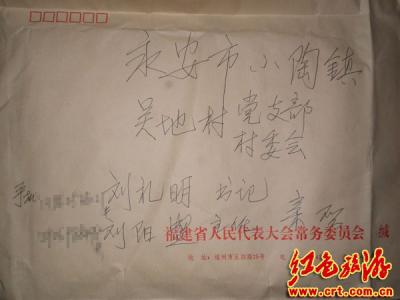 永安市小陶鎮
吴地村党支部
村委会
手机
刘礼明 书记
刘阳
亲启
福建省人民代表大会常务委员会 缄
地 址：福州市
红色旅游
www.crt.com.cn